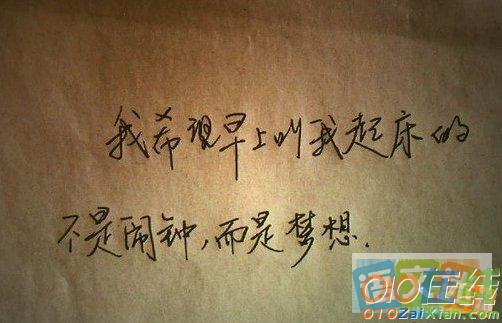 我希望早上叫我起床的
不是闹钟，而是梦想.
010在线
010Zaixian.com